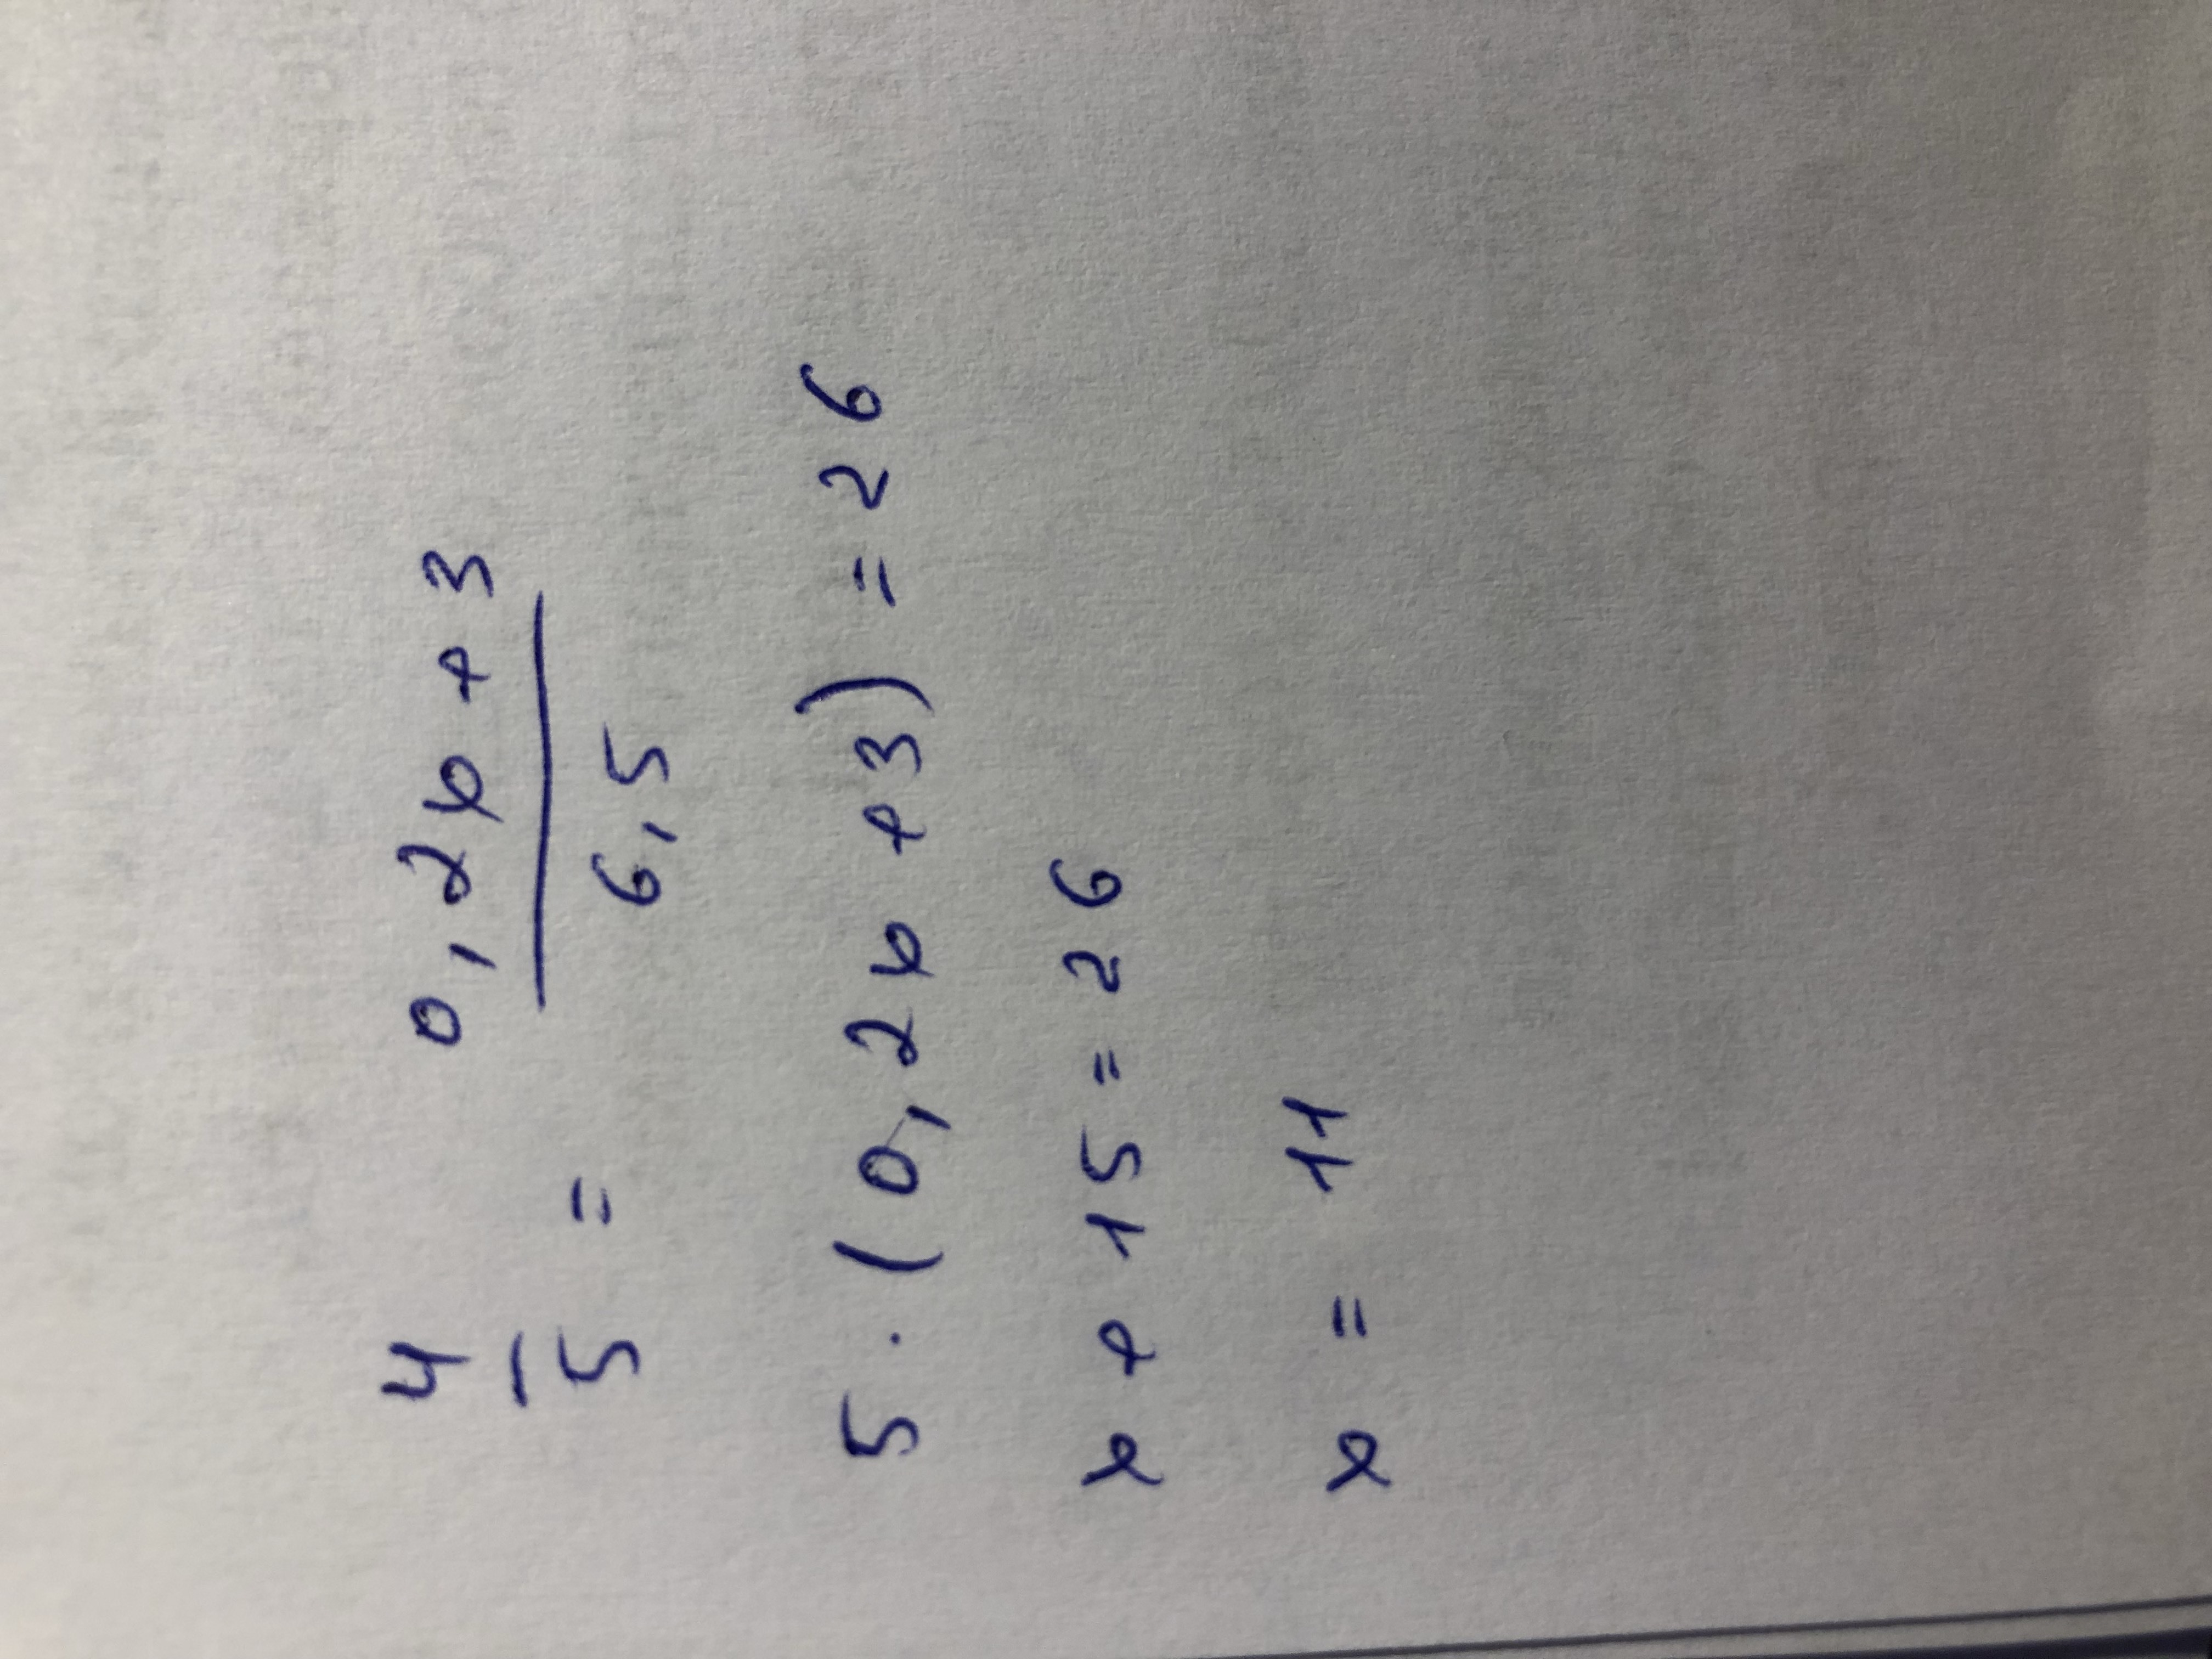 4/5 = (0,2x + 3)/6,5
5 · (0,2x + 3) = 26
x + 15 = 26
x = 11